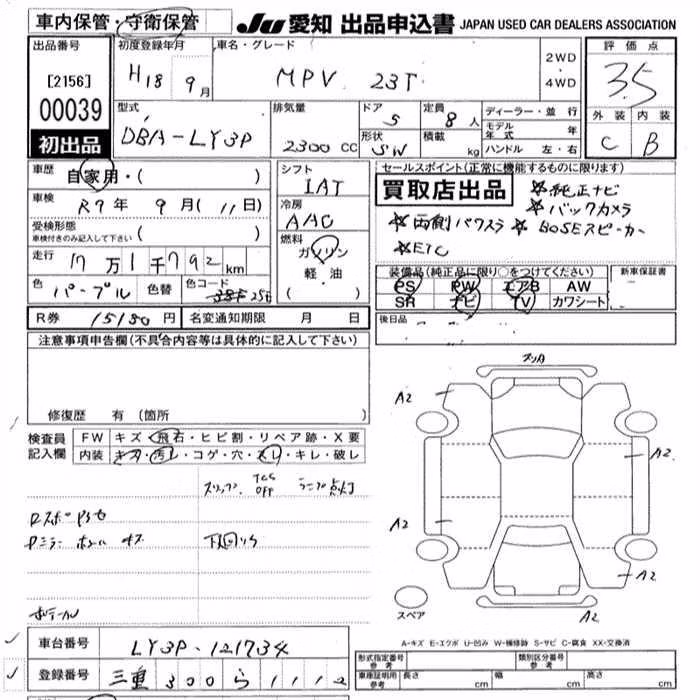 車内保管・守衛保管
JU 愛知 出品申込書 JAPAN USED CAR DEALERS ASSOCIATION
出品番号
[2156]
00039
初出品
初度登録年月
H18 9月
車名・グレード
MPV 23T
2WD
・
4WD
評価点
3.5
外装 内装
C B
型式
DBA-LY3P
排気量
2300 CC
ドア
5
形状
SW
定員
8人
積載
kg
ディーラー・並行
モデル年式 年
ハンドル 左・右
車歴
自家用・( )
車検
R7年 9月(11日)
受検形態
車検付きのみ記入して下さい ( )
走行
17万1千792km
色
パープル
色替
色コード
25E
シフト
IAT
冷房
AAC
燃料
ガソリン
軽・油
( )
セールスポイント(正常に機能するものに限ります)
買取店出品
☆純正ナビ
☆バックカメラ
☆両側パワスラ ☆BOSEスピーカー
☆ETC
装備品(純正品に限り○をつけてください)
PS PW エアB AW
SR ナビ TV カワシート
新車保証書
後日品
R券 15180円
名変通知期限 月 日
注意事項申告欄(不具合内容等は具体的に記入して下さい)
修復歴 有 (箇所 )
検査員
記入欄
FW キズ・飛石・ヒビ割・リペア跡・X要
内装 キズ・汚レ・コゲ・穴・スレ・キレ・破レ
スリップ TCS OFF ランプ点灯
下回りサ
A2
A2
A2
A2
A2
スペア
A-キズ E-エクボ U-凹み W-補修跡 S-サビ C-腐食 XX-交換済
車台番号
LY3P-121734
登録番号
三重 300 ら 1112
形式指定番号
参考
類別区分番号
参考
車庫証明用
参考
長さ cm
幅 cm
高さ cm